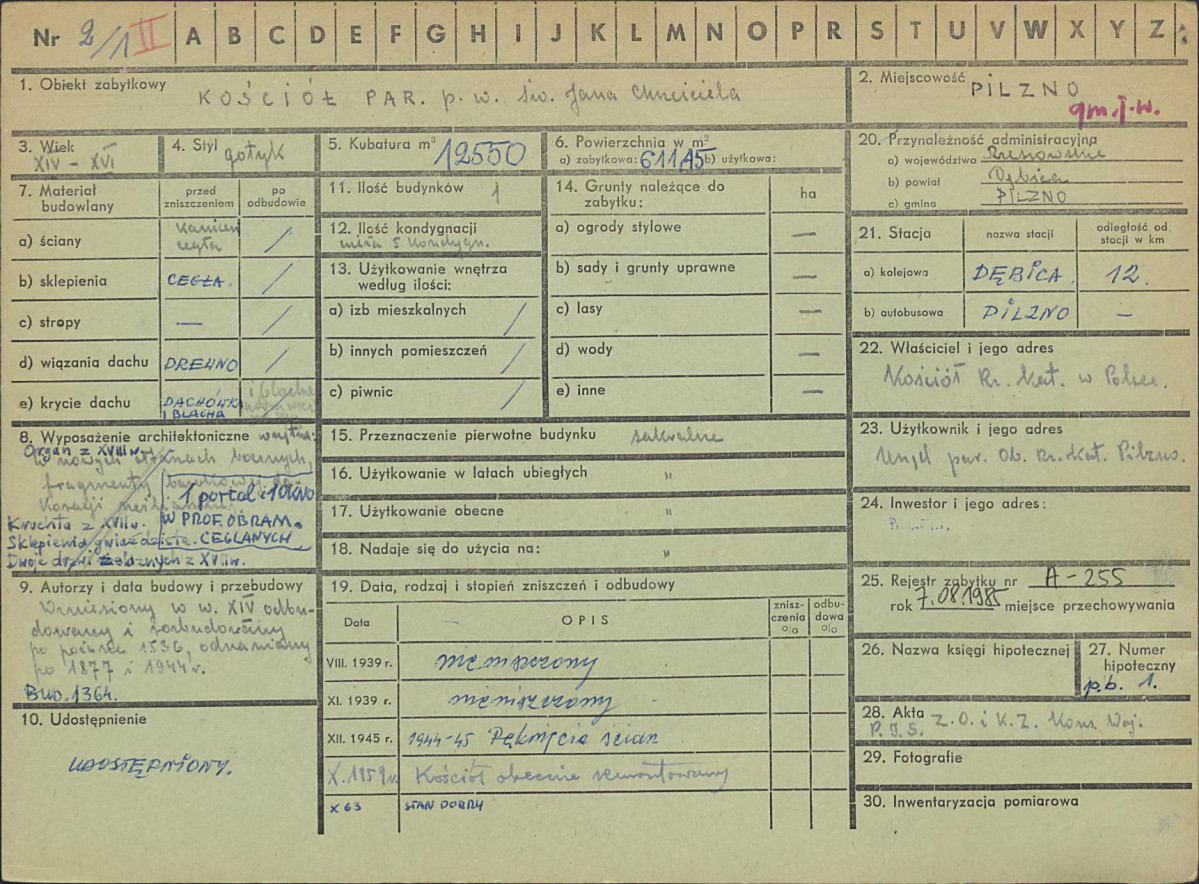 Nr 2/1 II A B C D E F G H I J K L M N O P R S T U V W X Y Z
1. Obiekt zabytkowy
KOŚCIÓŁ PAR. p. w. św. Jana Chrzciciela
2. Miejscowość
PILZNO
gm. i w.
3. Wiek
XIV – XVI
4. Styl gotyk
5. Kubatura m³ 12550
6. Powierzchnia w m²
a) zabytkowa: 611,45 b) użytkowa:
20. Przynależność administracyjna
a) województwo Rzeszowskie
b) powiat Dębica
c) gmina PILZNO
7. Materiał budowlany
przed zniszczeniem
po odbudowie
a) ściany kamień cegła /
b) sklepienia CEGŁA. /
c) stropy — /
d) wiązania dachu DREWNO /
e) krycie dachu DACHÓWKA I BLACHA i blacha
11. Ilość budynków 1
12. Ilość kondygnacji
wieża 5 kondygn.
13. Użytkowanie wnętrza według ilości:
a) izb mieszkalnych /
b) innych pomieszczeń /
c) piwnic /
14. Grunty należące do zabytku:
ha
a) ogrody stylowe —
b) sady i grunty uprawne —
c) lasy —
d) wody —
e) inne —
21. Stacja
nazwa stacji
odległość od stacji w km
a) kolejowa DĘBICA 12.
b) autobusowa PILZNO —
22. Właściciel i jego adres
Kościół Rz. Kat. w Polsce.
8. Wyposażenie architektoniczne wnętrza:
Organ z XVIII w.
w nowych ołtarzach bocznych,
fragmenty barokowej de-
koracji
Kruchta z XVII w.
Sklepienia gwiaździste.
Dwoje drzwi żelaznych z XVII w.
1 portal i 1 okno
W PROF. OBRAM.
CEGLANYCH
15. Przeznaczenie pierwotne budynku sakralne
16. Użytkowanie w latach ubiegłych "
17. Użytkowanie obecne "
18. Nadaje się do użycia na: "
23. Użytkownik i jego adres
Urząd par. Ob. Rz.-Kat. Pilzno.
24. Inwestor i jego adres:
9. Autorzy i data budowy i przebudowy
Wzniesiony w w. XIV odbu-
dowany i rozbudowany
po pożarze 1536, odnawiany
po 1877 i 1944 r.
Bud. 1364.
10. Udostępnienie
UDOSTĘPNIONY.
19. Data, rodzaj i stopień zniszczeń i odbudowy
Data
OPIS
znisz-czenia %
odbu-dowa %
VIII. 1939 r. niezniszczony
XI. 1939 r. niezniszczony
XII. 1945 r. 1944-45 Pęknięcia ścian
X. 1959 r. Kościół obecnie remontowany
X 63 STAN DOBRY
25. Rejestr zabytku nr A-255
rok 7.08.1985 miejsce przechowywania
26. Nazwa księgi hipotecznej
27. Numer hipoteczny
p.b. 1.
28. Akta Z.O. i K.Z. Kons. Woj.
P.I.S.
29. Fotografie
30. Inwentaryzacja pomiarowa